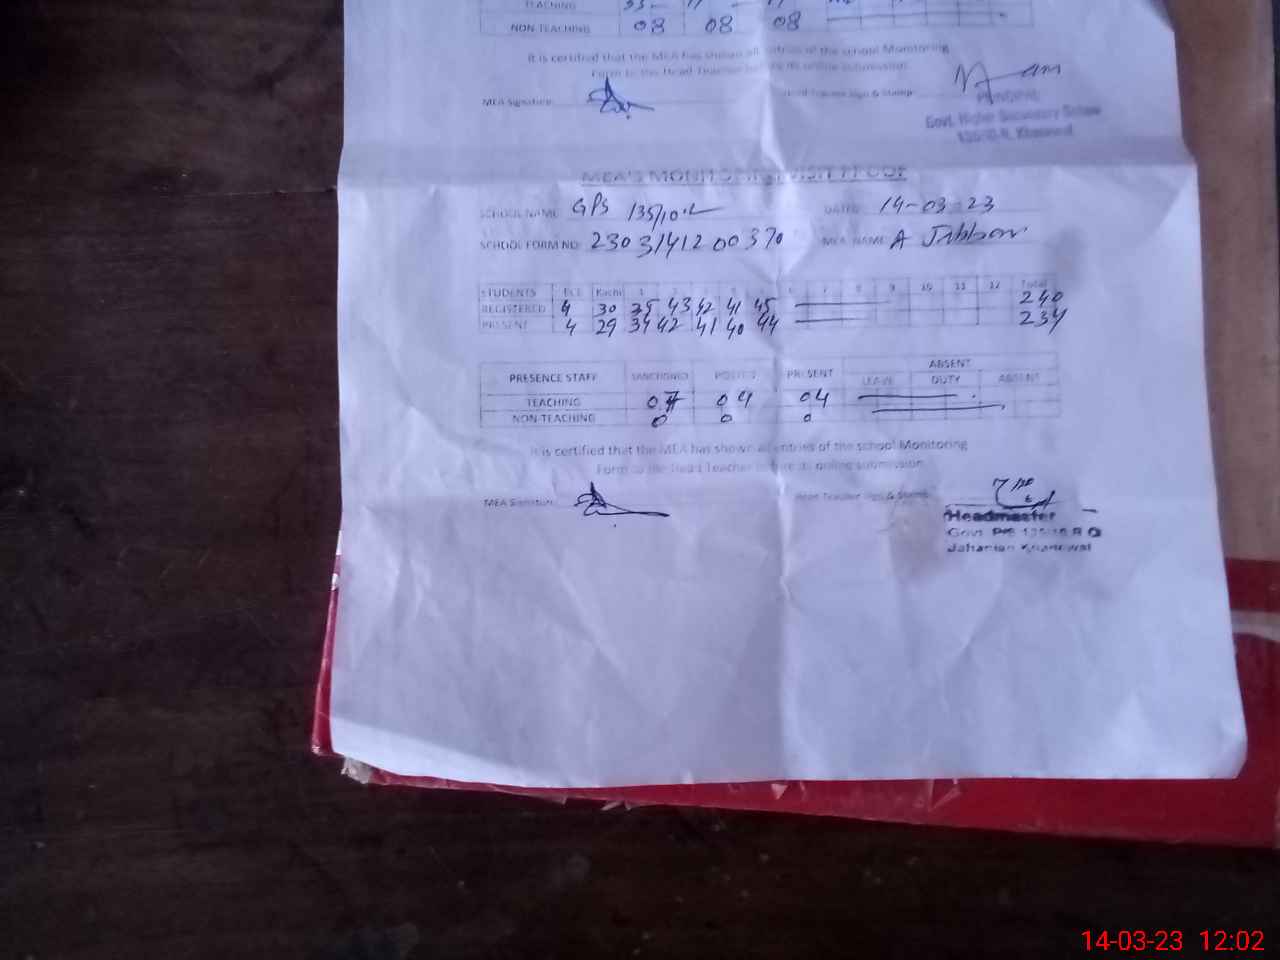 TEACHING
NON-TEACHING 08 08 08
It is certified that the MEA has shown all entries of the school Monitoring
Form to the Head Teacher before its online submission
MEA Signature: Head Teacher Sign & Stamp
PRINCIPAL
Govt. Higher Secondary School
Khanewal
MEA'S MONITORING VISIT PROOF
SCHOOL NAME: GPS 135/10.R DATED: 14-03-23
SCHOOL FORM NO: 23031412 00370 MEA NAME: A Jabbar
STUDENTS ECE Kachi 1 2 3 4 5 6 7 8 9 10 11 12 Total
REGISTERED 4 30 35 43 42 41 45 240
PRESENT 4 29 34 42 41 40 44 234
PRESENCE STAFF SANCTIONED POSTED PRESENT ABSENT
LEAVE DUTY ABSENT
TEACHING 04 04
NON-TEACHING 0 0 0
It is certified that the MEA has shown all entries of the school Monitoring
Form to the Head Teacher before its online submission
MEA Signature: Head Teacher Sign & Stamp
Headmaster
Govt. P/S 135/10.R
Jahanian Khanewal
14-03-23 12:02